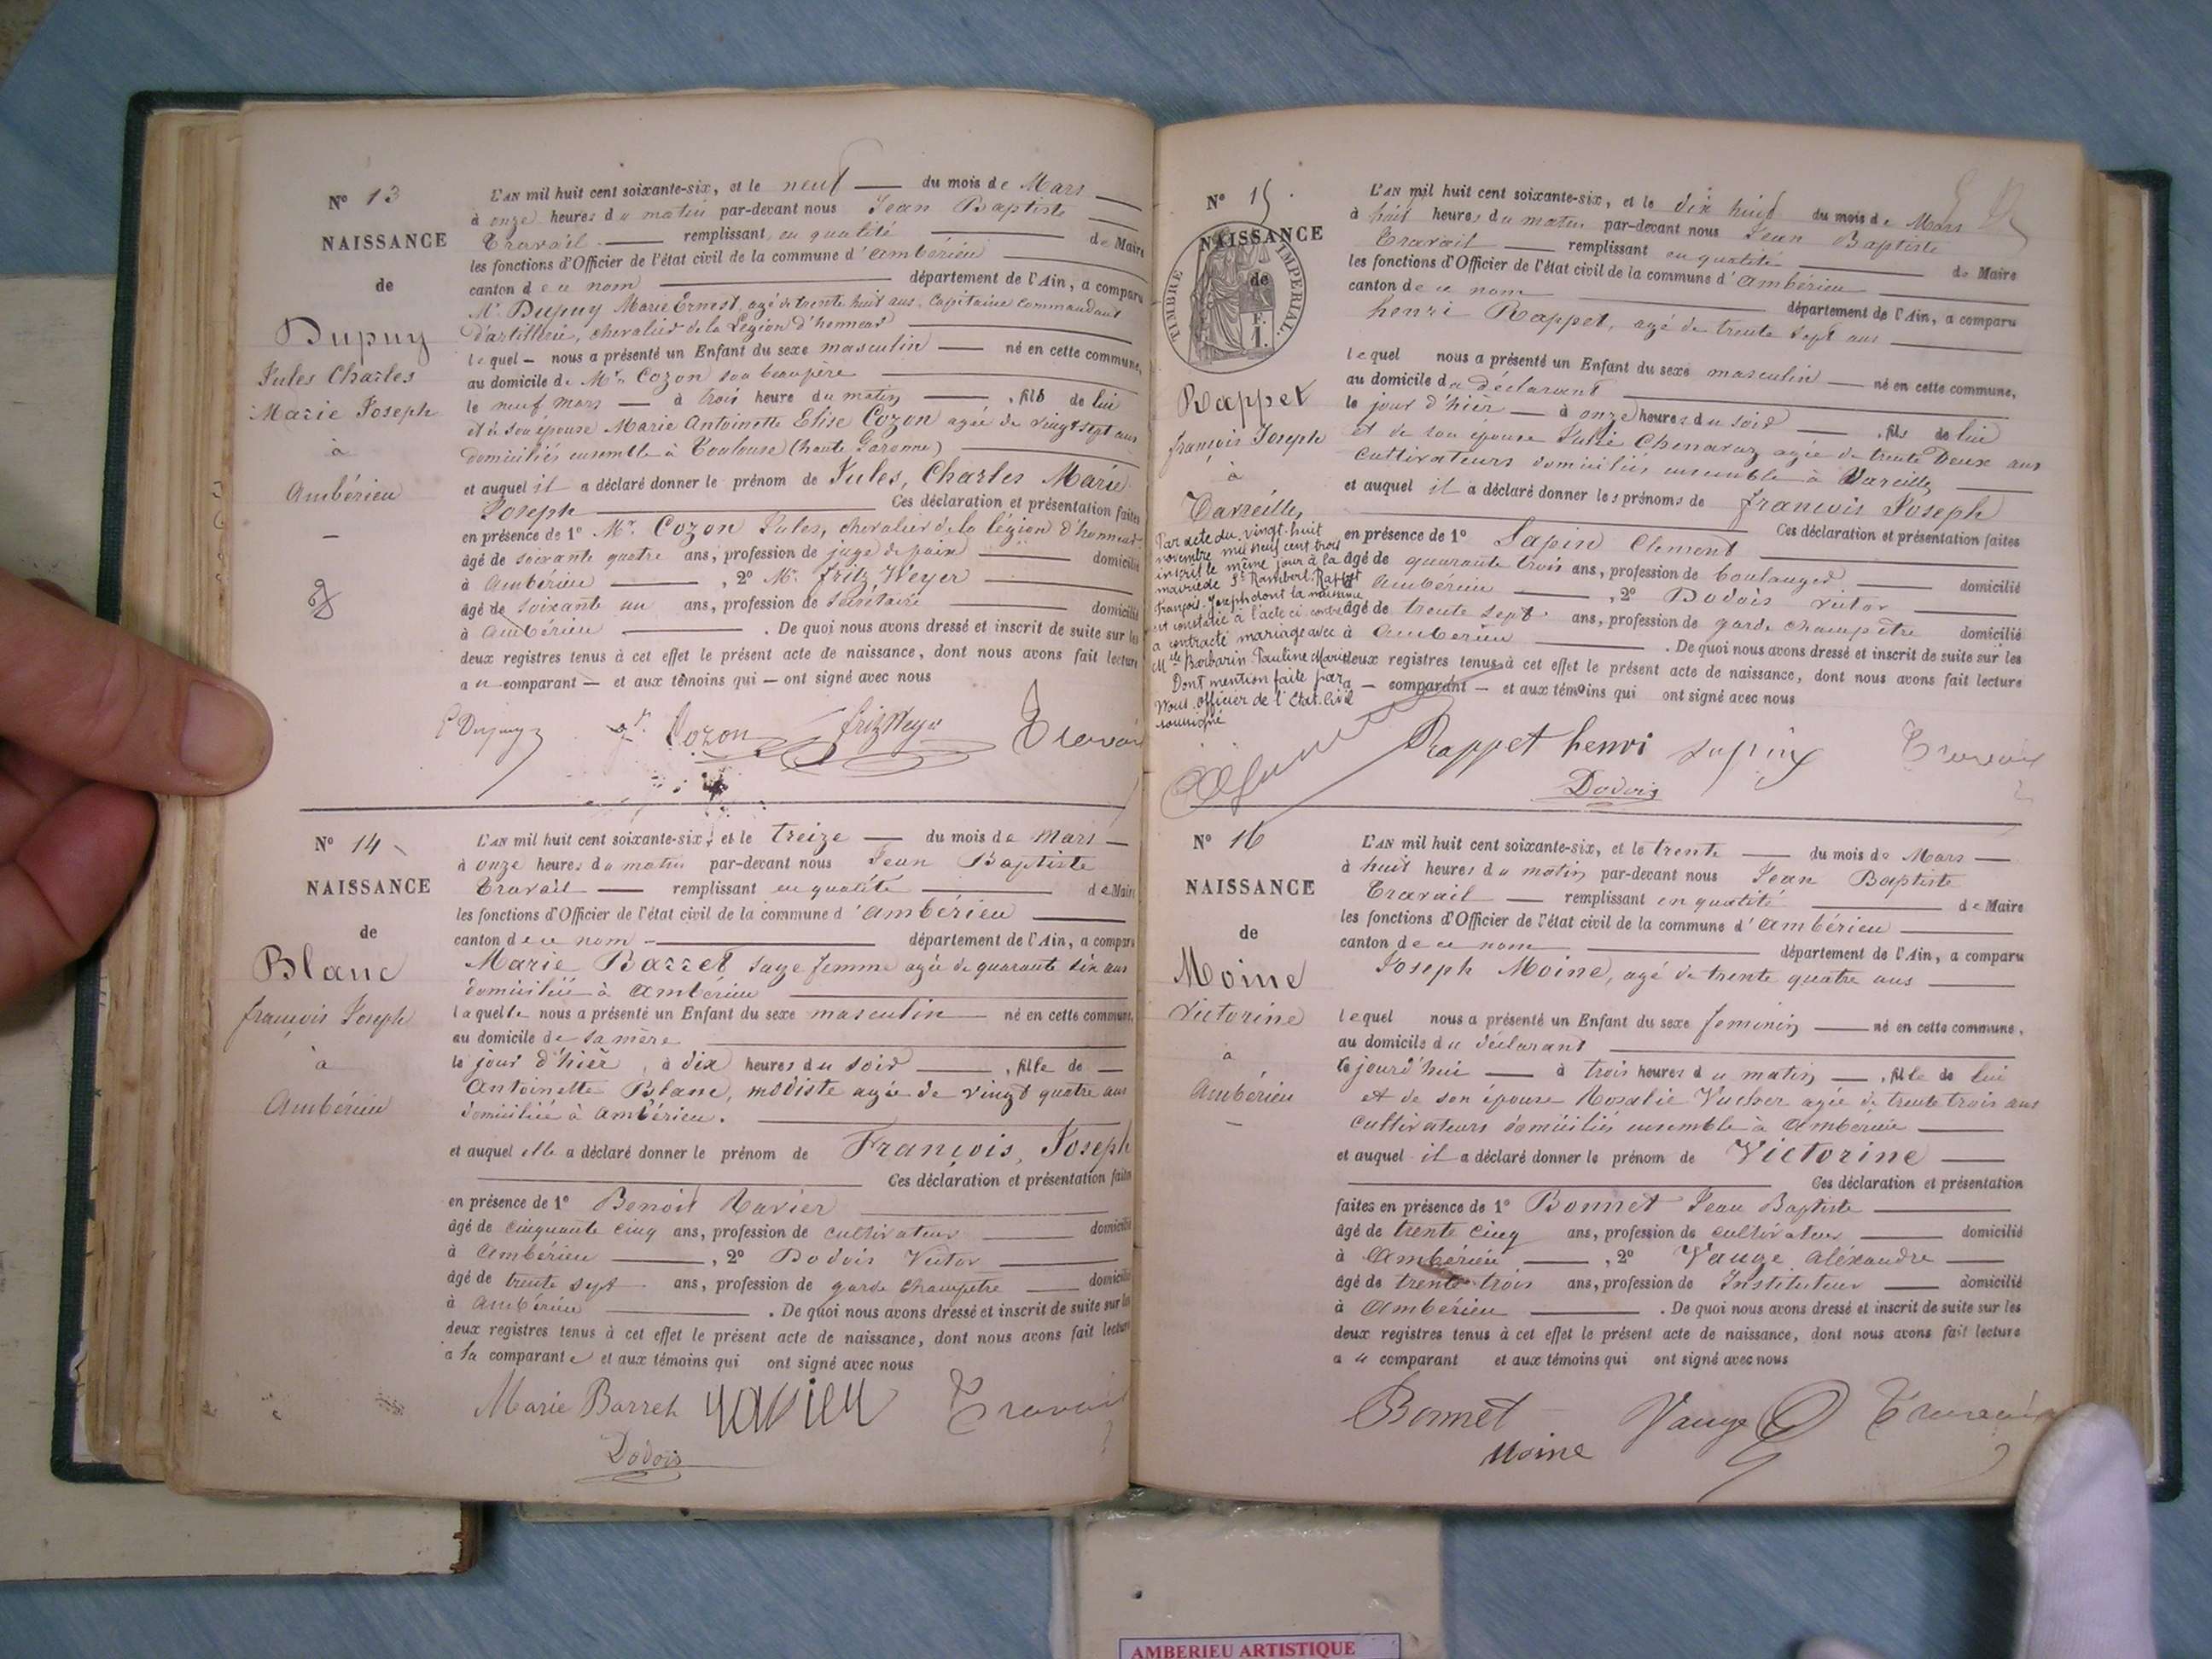 N° 13
NAISSANCE
de
Dupuy
Jules Charles
Marie Joseph
à
Ambérieu
L'AN mil huit cent soixante-six, et le neuf du mois de Mars
à onze heures du matin par-devant nous Jean Baptiste
Travail remplissant en qualité de Maire
les fonctions d'Officier de l'état civil de la commune d'Ambérieu
canton de ce nom département de l'Ain, a comparu
Mr Dupuy Marie Ernest, agé de trente huit ans, Capitaine Commandant
d'artillerie, chevalier de la Légion d'honneur
lequel nous a présenté un Enfant du sexe masculin né en cette commune,
au domicile de Mr Cozon son beaupère
le neuf mars à trois heure du matin, fils de lui
et de son épouse Marie Antoinette Elise Cozon agée de vingt sept ans
domiciliés ensemble à Toulouse (haute Garonne)
et auquel il a déclaré donner le prénom de Jules, Charles Marie
Joseph Ces déclaration et présentation faites
en présence de 1° Mr Cozon Jules, chevalier de la légion d'honneur
âgé de soixante quatre ans, profession de juge de paix domicilié
à Ambérieu, 2° Mr. Fritz Weyer
âgé de soixante un ans, profession de secrétaire domicilié
à Ambérieu. De quoi nous avons dressé et inscrit de suite sur les
deux registres tenus à cet effet le présent acte de naissance, dont nous avons fait lecture
au comparant et aux témoins qui ont signé avec nous
E Dupuy Cozon Fritz Weyer Travail
N° 14
NAISSANCE
de
Blanc
françois Joseph
à
Ambérieu
L'AN mil huit cent soixante-six, et le treize du mois de Mars
à onze heures du matin par-devant nous Jean Baptiste
Travail remplissant en qualité de Maire
les fonctions d'Officier de l'état civil de la commune d'Ambérieu
canton de ce nom département de l'Ain, a comparu
Marie Barret sage femme agée de quarante six ans
domiciliée à Ambérieu
laquelle nous a présenté un Enfant du sexe masculin né en cette commune,
au domicile de sa mère
le jour d'hièr, à dix heures du soir, fille de
Antoinette Blanc, modiste agée de vingt quatre ans
domiciliée à Ambérieu.
et auquel elle a déclaré donner le prénom de François, Joseph
Ces déclaration et présentation faites
en présence de 1° Benoit Xavier
âgé de cinquante cinq ans, profession de cultivateur domicilié
à Ambérieu, 2° Dodois Victor
âgé de trente sept ans, profession de garde champêtre domicilié
à Ambérieu. De quoi nous avons dressé et inscrit de suite sur les
deux registres tenus à cet effet le présent acte de naissance, dont nous avons fait lecture
a la comparante et aux témoins qui ont signé avec nous
Marie Barret Xavier Travail
Dodois
N° 15
TIMBRE IMPERIAL
F.
1.
NAISSANCE
de
Rappet
françois Joseph
à
Vareilles
Par acte du vingt-huit
novembre mil neuf cent trois
inscrit le même jour à la
mairie de St Rambert, Rappet
François Joseph dont la naissance
est constatée à l'acte ci contre
a contracté mariage avec
Mlle Barbarin Pauline Marie
Dont mention faite par
Nous, officier de l'Etat-Civil
soussigné
L'AN mil huit cent soixante-six, et le dix huit du mois de Mars
à huit heures du matin par-devant nous Jean Baptiste
Travail remplissant en qualité de Maire
les fonctions d'Officier de l'état civil de la commune d'Ambérieu
canton de ce nom département de l'Ain, a comparu
henri Rappet, agé de trente sept ans
lequel nous a présenté un Enfant du sexe masculin né en cette commune,
au domicile du déclarant
le jour d'hièr à onze heures du soir, fils de lui
et de son épouse Julie Chenavaz agée de trente Deux ans
Cultivateurs domiciliés ensemble à Vareilles
et auquel il a déclaré donner les prénoms de françois Joseph
Ces déclaration et présentation faites
en présence de 1° Sapin Clément
âgé de quarante trois ans, profession de boulanger domicilié
à Ambérieu, 2° Dodois victor
âgé de trente sept ans, profession de garde champêtre domicilié
à Ambérieu. De quoi nous avons dressé et inscrit de suite sur les
deux registres tenus à cet effet le présent acte de naissance, dont nous avons fait lecture
a comparant et aux témoins qui ont signé avec nous
Rappet henri Sapin Travail
Dodois
N° 16
NAISSANCE
de
Moine
Victorine
à
Ambérieu
L'AN mil huit cent soixante-six, et le trente du mois de Mars
à huit heures du matin par-devant nous Jean Baptiste
Travail remplissant en qualité de Maire
les fonctions d'Officier de l'état civil de la commune d'Ambérieu
canton de ce nom département de l'Ain, a comparu
Joseph Moine, agé de trente quatre ans
lequel nous a présenté un Enfant du sexe féminin né en cette commune,
au domicile du déclarant
le jourd'hui à trois heures du matin, fille de lui
et de son épouse Rosalie Vucher agée de trente trois ans
cultivateurs domiciliés ensemble à Ambérieu
et auquel il a déclaré donner le prénom de Victorine
Ces déclaration et présentation
faites en présence de 1° Bonnet Jean Baptiste
âgé de trente cinq ans, profession de cultivateur domicilié
à Ambérieu, 2° Vauge Aléxandre
âgé de trente trois ans, profession de Instituteur domicilié
à Ambérieu. De quoi nous avons dressé et inscrit de suite sur les
deux registres tenus à cet effet le présent acte de naissance, dont nous avons fait lecture
au comparant et aux témoins qui ont signé avec nous
Bonnet Vauge Travail
Moine
AMBERIEU ARTISTIQUE